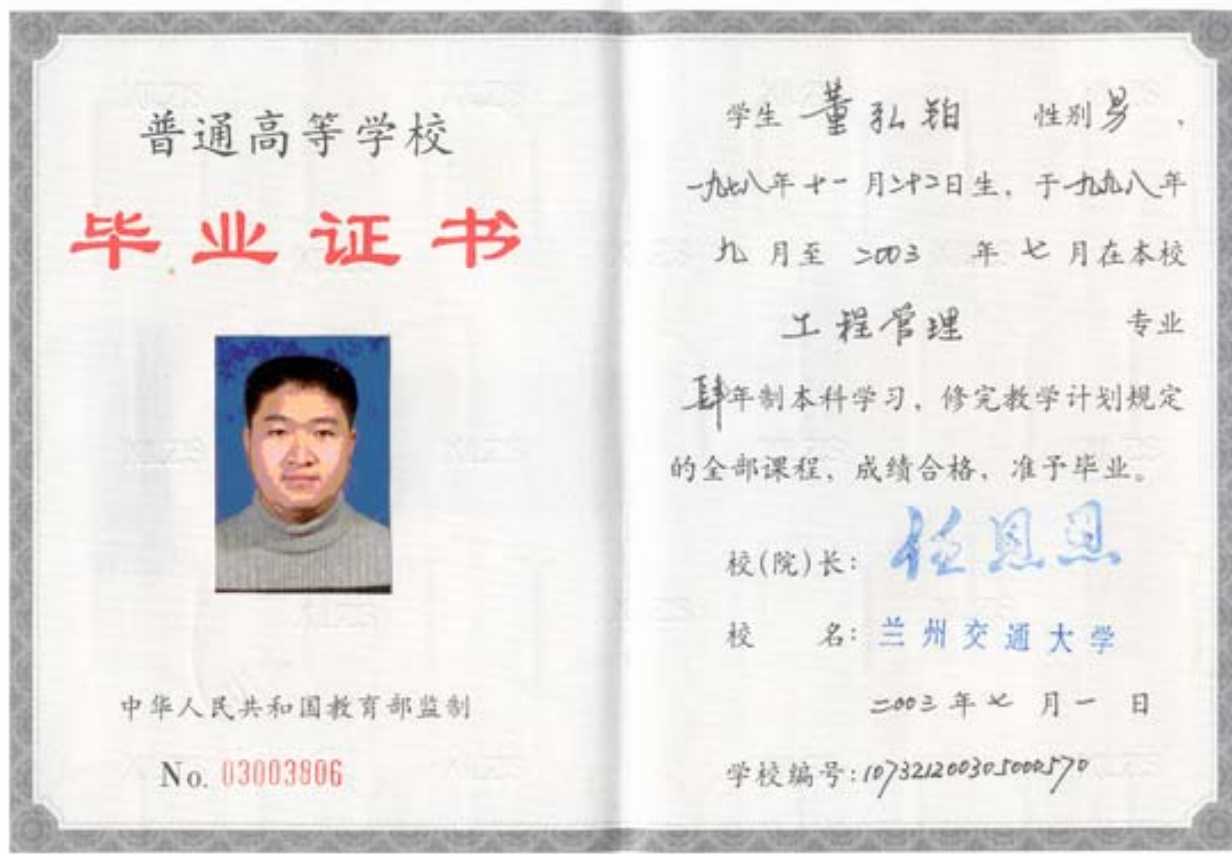 普通高等学校
毕业证书
中华人民共和国教育部监制
No. 03003806
学生 董弘铂 性别 男,
一九七八年十一月二十二日生, 于一九九八年
九月至 二〇〇三 年 七 月在本校
工程管理 专业
肆年制本科学习, 修完教学计划规定
的全部课程, 成绩合格, 准予毕业。
校(院)长: 任恩恩
校 名: 兰州交通大学
二〇〇三年七月一日
学校编号: 107321200305000570